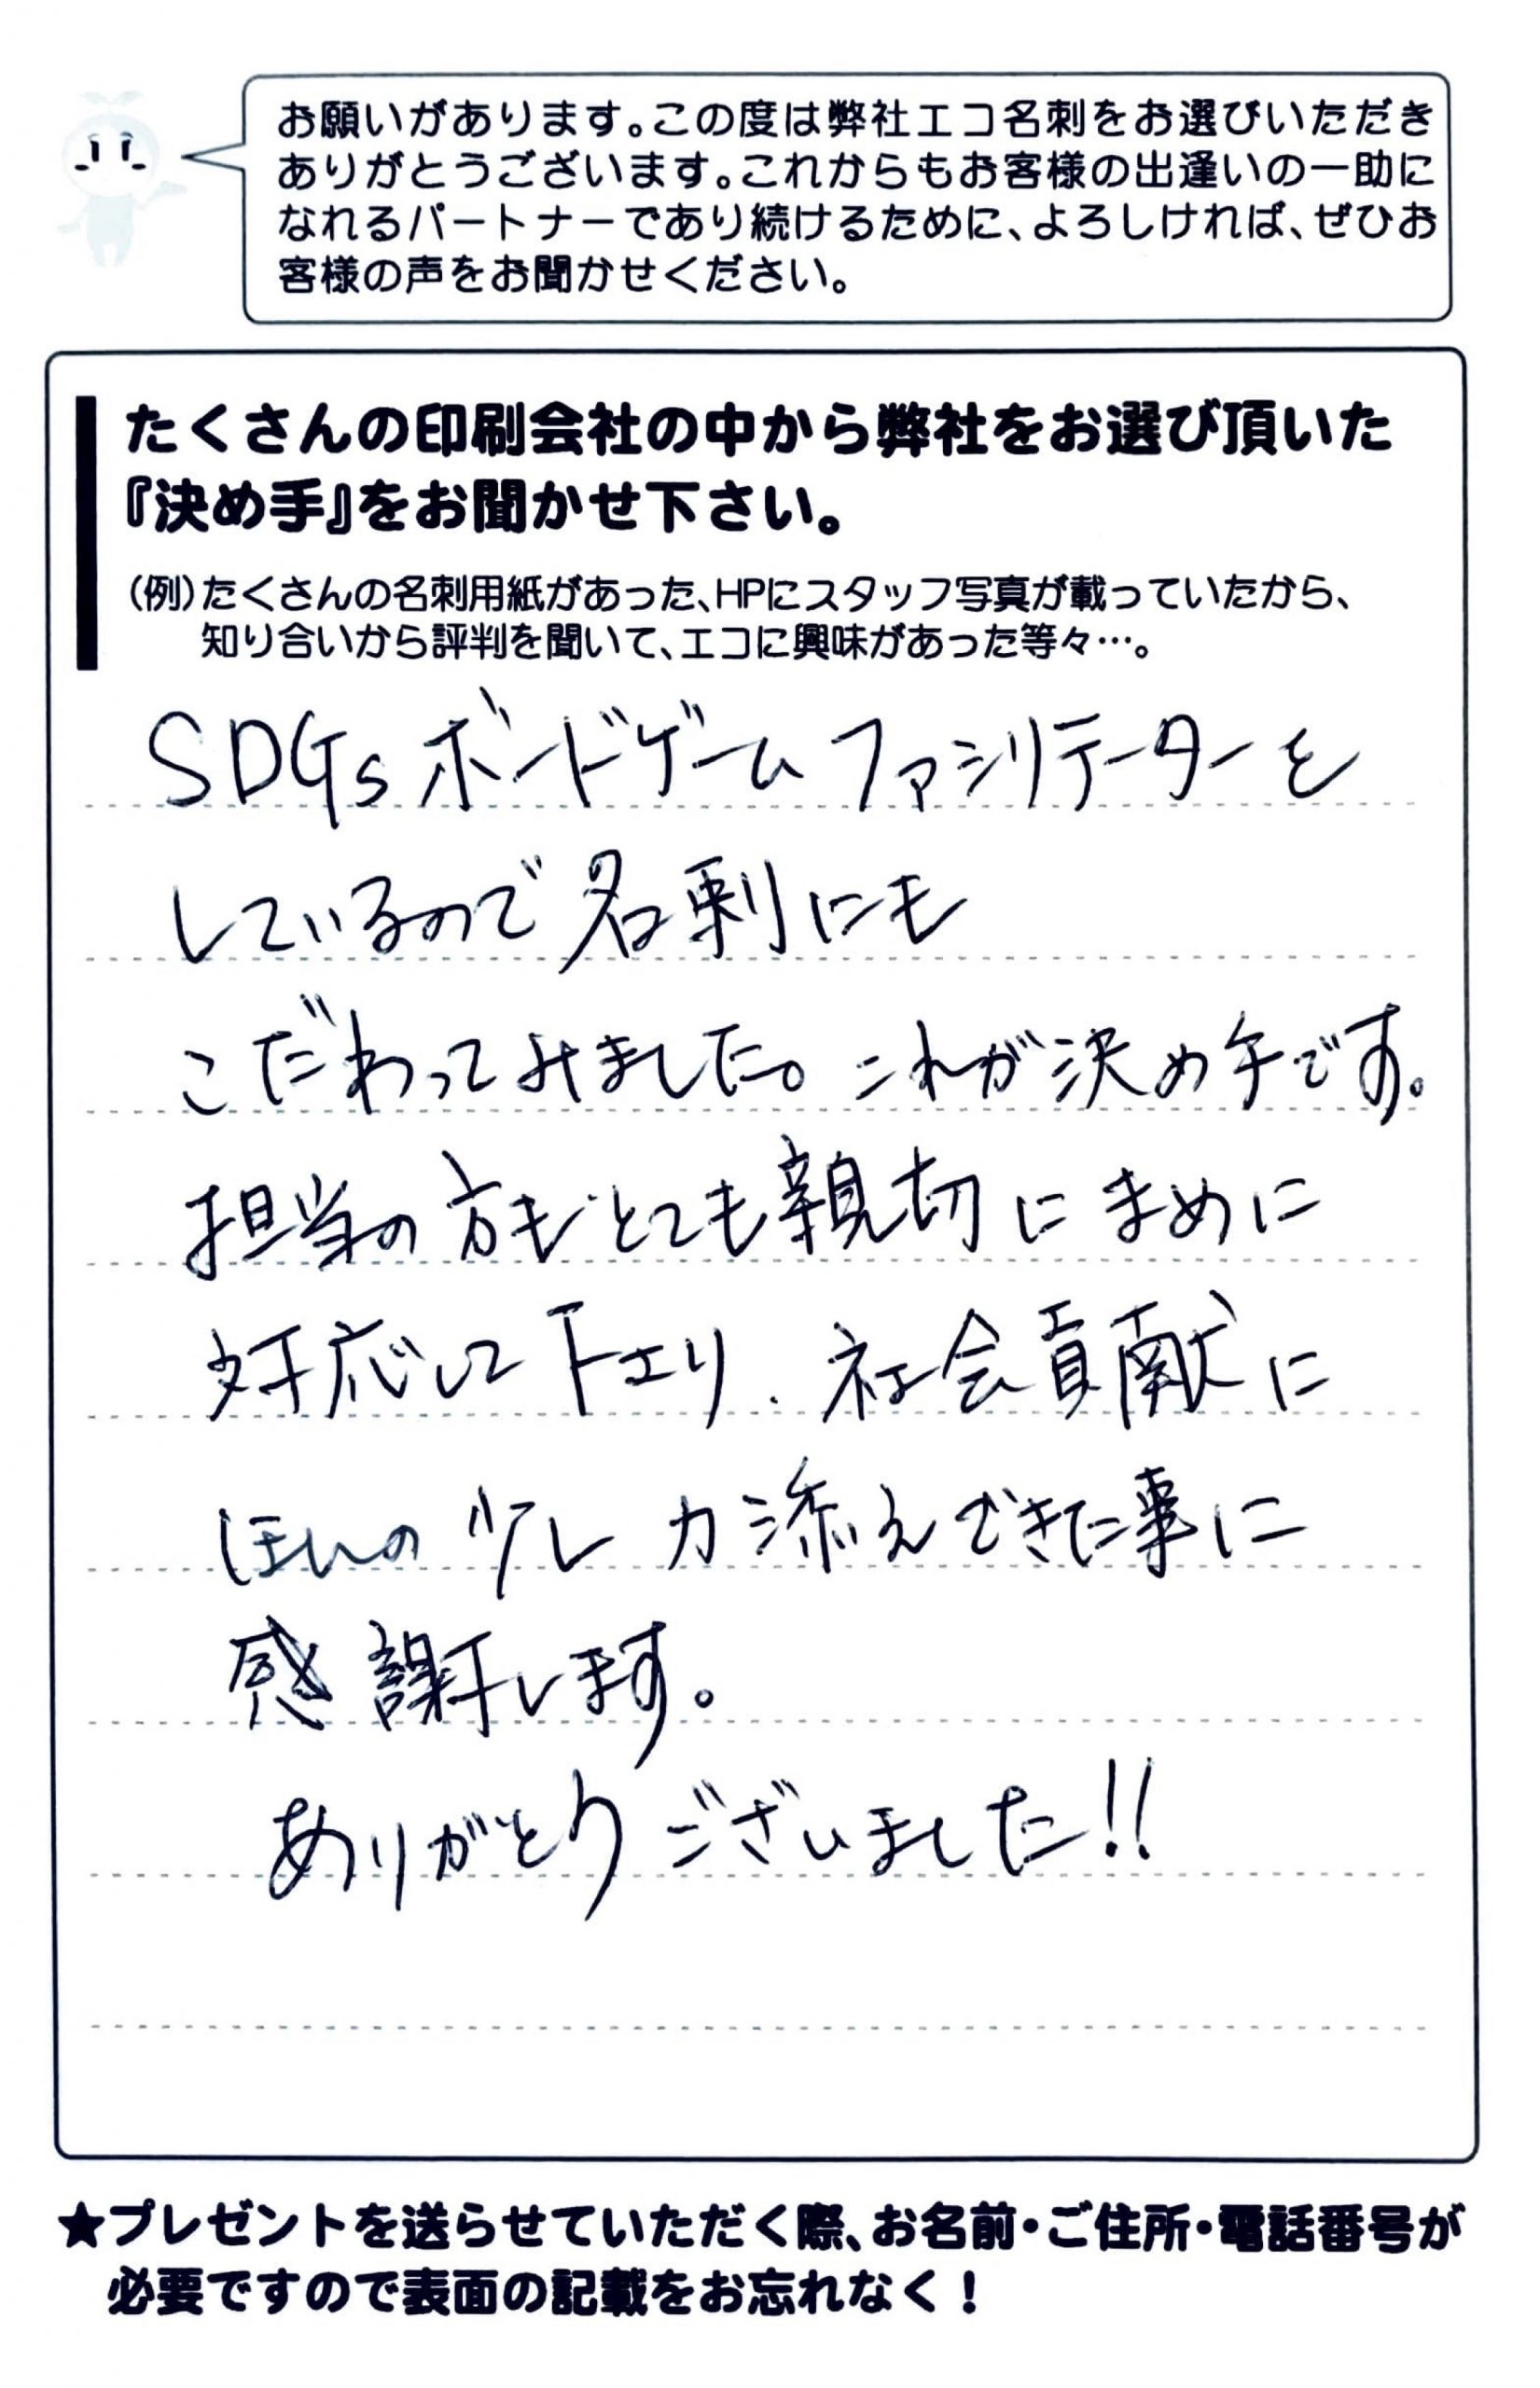 お願いがあります。この度は弊社エコ名刺をお選びいただき
ありがとうございます。これからもお客様の出逢いの一助に
なれるパートナーであり続けるために、よろしければ、ぜひお
客様の声をお聞かせください。
たくさんの印刷会社の中から弊社をお選び頂いた
『決め手』をお聞かせ下さい。
(例)たくさんの名刺用紙があった、HPにスタッフ写真が載っていたから、
知り合いから評判を聞いて、エコに興味があった等々…。
SDGsボードゲームファシリテーターを
しているので名刺にも
こだわってみました。これが決め手です。
担当の方もとても親切にまめに
対応して下さり、社会貢献に
ほんの少し力添えできた事に
感謝します。
ありがとうございました!!
★プレゼントを送らせていただく際、お名前・ご住所・電話番号が
必要ですので表面の記載をお忘れなく!